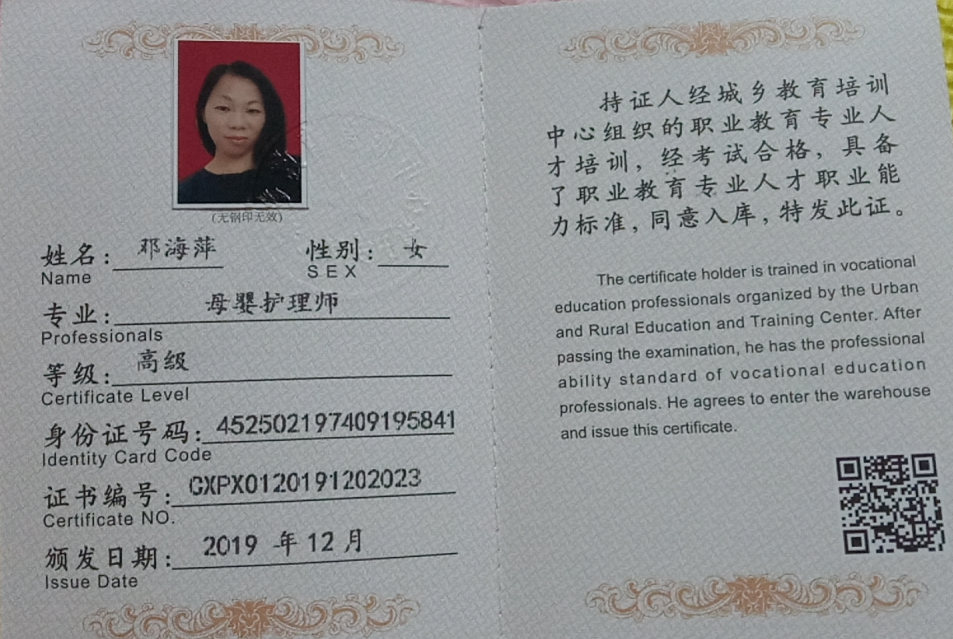 (无钢印无效)
姓名: 邓海萍 性别: 女
Name SEX
专业: 母婴护理师
Professionals
等级: 高级
Certificate Level
身份证号码: 452502197409195841
Identity Card Code
证书编号: CXPX0120191202023
Certificate NO.
颁发日期: 2019 年 12 月
Issue Date
持证人经城乡教育培训
中心组织的职业教育专业人
才培训，经考试合格，具备
了职业教育专业人才职业能
力标准，同意入库，特发此证。
The certificate holder is trained in vocational
education professionals organized by the Urban
and Rural Education and Training Center. After
passing the examination, he has the professional
ability standard of vocational education
professionals. He agrees to enter the warehouse
and issue this certificate.